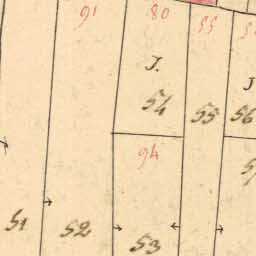 91 80 55
J. J
54 55 56
94
51 52 53